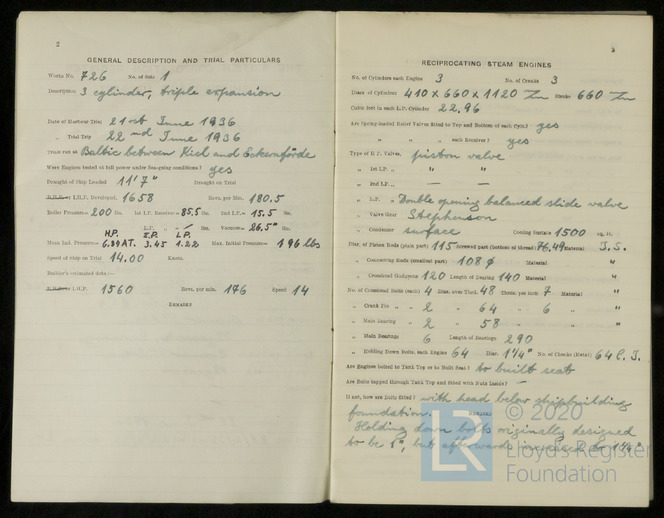 2
GENERAL DESCRIPTION AND TRIAL PARTICULARS
Works No. 726 No. of Sets 1
Description 3 cylinder, triple expansion
Date of Harbour Trial 21st June 1936
" Trial Trip 22nd June 1936
Trials run at Baltic between Kiel and Eckernförde
Were Engines tested at full power under Sea-going conditions? yes
Draught of Ship Loaded 11'7" Draught on Trial
B.H.P. or I.H.P. Developed, 1658 Revs. per Min. 180.5
Boiler Pressure= 200 lbs. 1st I.P. Receiver= 85.5 lbs. 2nd I.P.= 15.5 lbs.
L.P. - lbs. Vacuum= 26.5" lbs.
H.P. I.P. L.P.
Mean Ind. Pressure= 6.29 AT. 3.45 1.22 Max. Initial Pressure= 196 lbs
Speed of Ship on Trial 14.00 Knots.
Builder's estimated data:—
B.H.P. or I.H.P. 1560 Revs. per min. 176 Speed 14
REMARKS
3
RECIPROCATING STEAM ENGINES
No. of Cylinders each Engine 3 No. of Cranks 3
Diam. of Cylinders 410 x 660 x 1120 Stroke 660
Cubic feet in each L.P. Cylinder 22.96
Are Spring-loaded Relief Valves fitted to Top and Bottom of each Cyln.? yes
" " " each Receiver? yes
Type of H.P. Valves, piston valve
" 1st I.P. " "
" 2nd I.P. " — —
" L.P. " Double opening balanced slide valve
" Valve Gear Stephenson
" Condenser surface Cooling Surface 1500 sq. ft.
Diar. of Piston Rods (plain part) 115 Screwed part (bottom of thread) 76.49 Material I.S.
" Connecting Rods (smallest part) 108 ∅ Material "
" Crosshead Gudgeons 120 Length of Bearing 140 Material "
No. of Crosshead Bolts (each) 4 Diar. over Thrd. 48 Thrds. per inch 7 Material "
" Crank Pin " " 2 " 64 " 6 " "
" Main Bearing " 2 " 58 " " "
" Main Bearings 6 Length of Bearings 290
" Holding Down Bolts, each Engine 64 Diar. 1 1/4" No. of Chocks (Metal) 64 C.I.
Are Engines bolted to Tank Top or to Built Seat? to built seat
Are Bolts tapped through Tank Top and fitted with Nuts Inside? —
If not, how are Bolts fitted? with head below shipbuilding
foundation.
Holding down bolts originally designed
to be 1", but afterwards increased to 1 1/4"
LR
© 2020
Lloyd's Register
Foundation